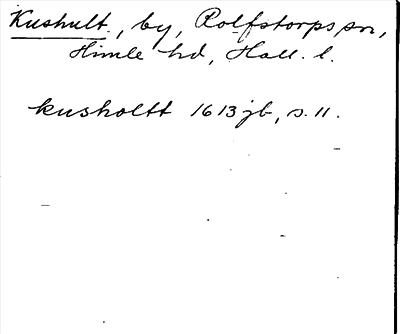 Kushult, by, Rolfstorps sn,
Himle hd, Hall. l.
kusholtt 1613 jb, s. 11.